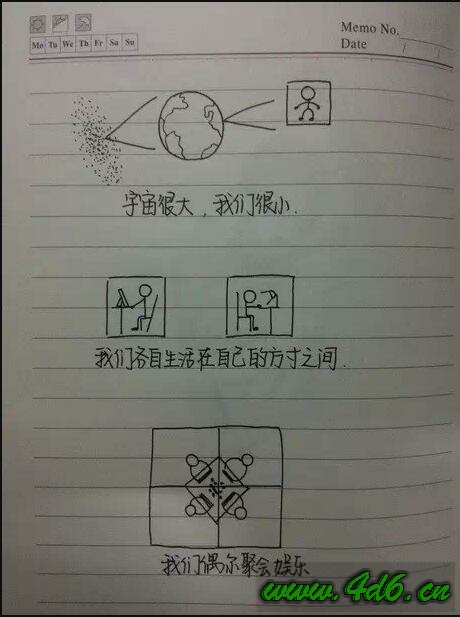 Memo No.
Mo Tu We Th Fr Sa Su
Date / /
宇宙很大，我们很小.
我们各自生活在自己的方寸之间.
我们偶尔聚会娱乐
www.4d6.cn